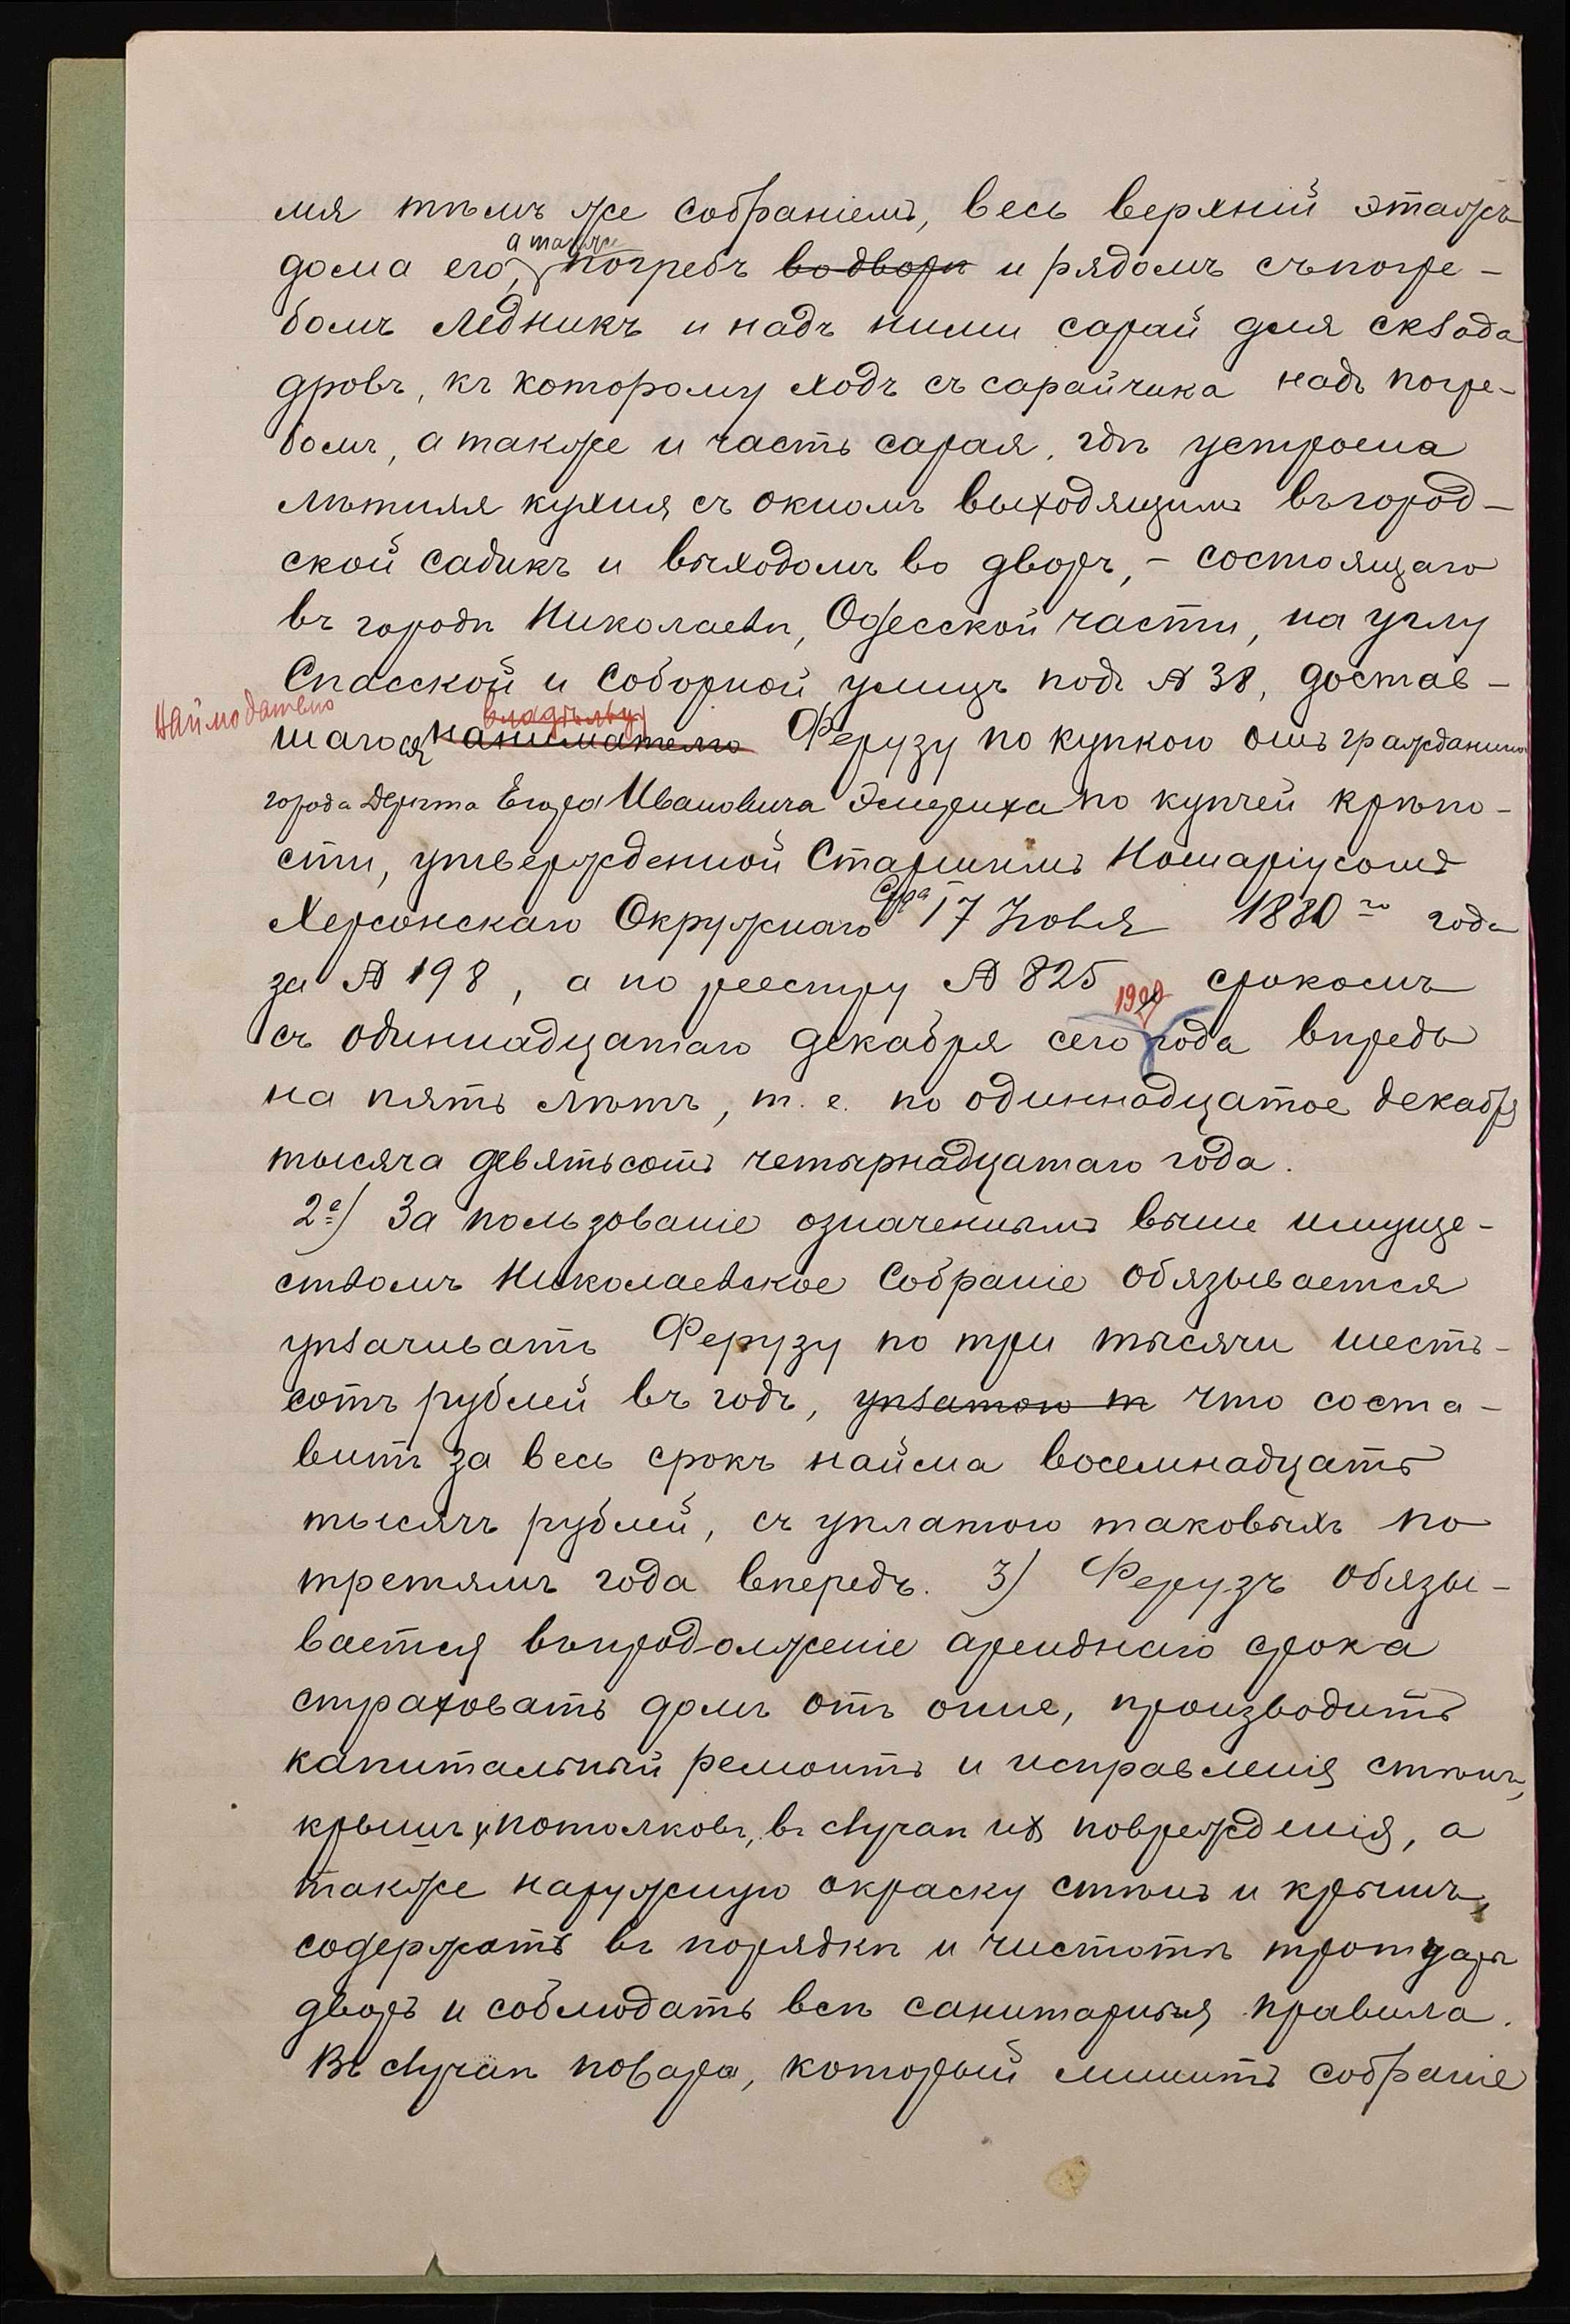 мя тѣмъ же собраніемъ, весь верхній этажъ
дома его, а также погребъ во дворѣ и рядомъ съ погре-
бомъ ледникъ и надъ ними сарай для склада
дровъ, къ которому ходъ съ сарайчика надъ погре-
бомъ, а также и часть сарая, гдѣ устроена
лѣтняя кухня съ окномъ выходящимъ въ город-
ской садикъ и выходомъ во дворъ, - состоящаго
въ городѣ Николаевѣ, Одесской части, на углу
Спасской и Соборной улицъ подъ № 38, достав-
Наймодателю владѣльцу
шагося нанимателю Ферузу по купкою отъ гражданина
города Дерпта Егора Ивановича Эмериха по купчей крѣпо-
сти, утвержденной Старшимъ Нотаріусомъ
Херсонскаго Окружнаго Суда 17 Іюня 1880го года
за № 198, а по реестру № 825 срокомъ
съ одиннадцатаго декабря сего 1909 года впредь
на пять лѣтъ, т. е. по одиннадцатое декабря
тысяча девятьсотъ четырнадцатаго года.
2е) За пользованіе означеннымъ выше имуще-
ствомъ Николаевское Собраніе обязывается
уплачивать Ферузу по три тысячи шесть-
сотъ рублей въ годъ, уплатою т что соста-
витъ за весь срокъ найма восемнадцать
тысячъ рублей, съ уплатою таковыхъ по
третямъ года впередъ. 3) Ферузъ обязы-
вается въ продолженіе аренднаго срока
страховать домъ отъ огня, производить
капитальный ремонтъ и исправленія стѣнъ,
крышъ и потолковъ, въ случаѣ их поврежденія, а
также наружную окраску стѣнъ и крышъ,
содержать въ порядкѣ и чистотѣ тротуаръ
дворъ и соблюдать всѣ санитарныя правила.
Въ случаѣ пожара, который лишитъ собраніе